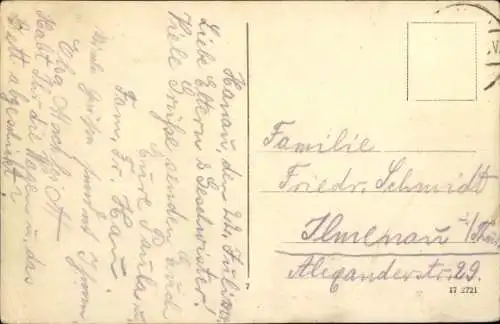 Hanau, den 22. Juli
Liebe Eltern & Geschwister!
Viele Grüße senden Euch
Eure Paula u.
Fam. Fr. Hau
Viele Grüße
Elsa
Habt Ihr die Wagen u. das
Bett abgeschickt?
Familie
Friedr. Schmidt
Ilmenau i/Thür
Alexanderstr. 29.
7
17 2721